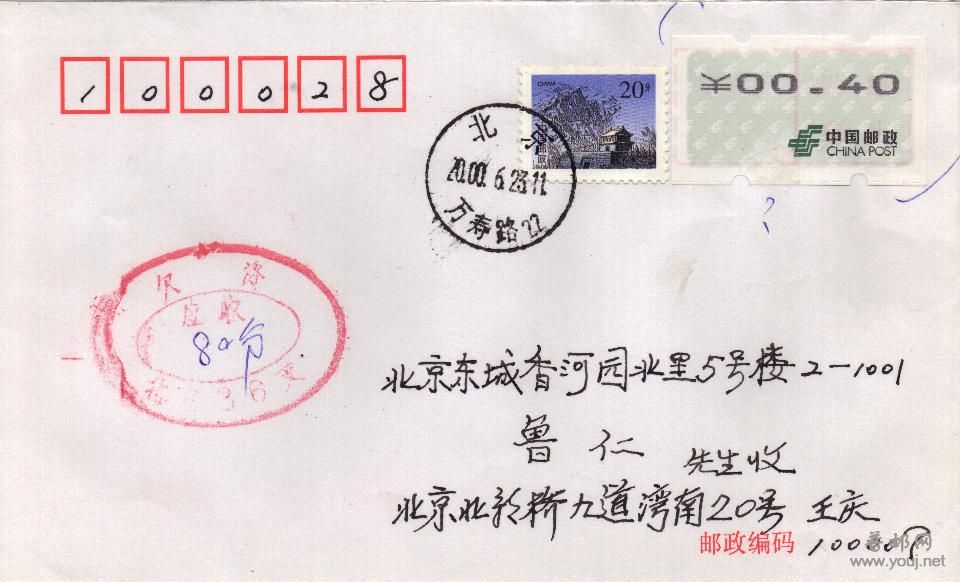 1 0 0 0 2 8
CHINA
20分
¥00.40
中国邮政
CHINA POST
北京
2000.6.23.11
万寿路22
?
欠资
应收
80分
36
北京东城香河园北里5号楼2-1001
鲁仁 先生收
北京北新桥九道湾南20号 王庆
邮政编码 10000
www.youj.net